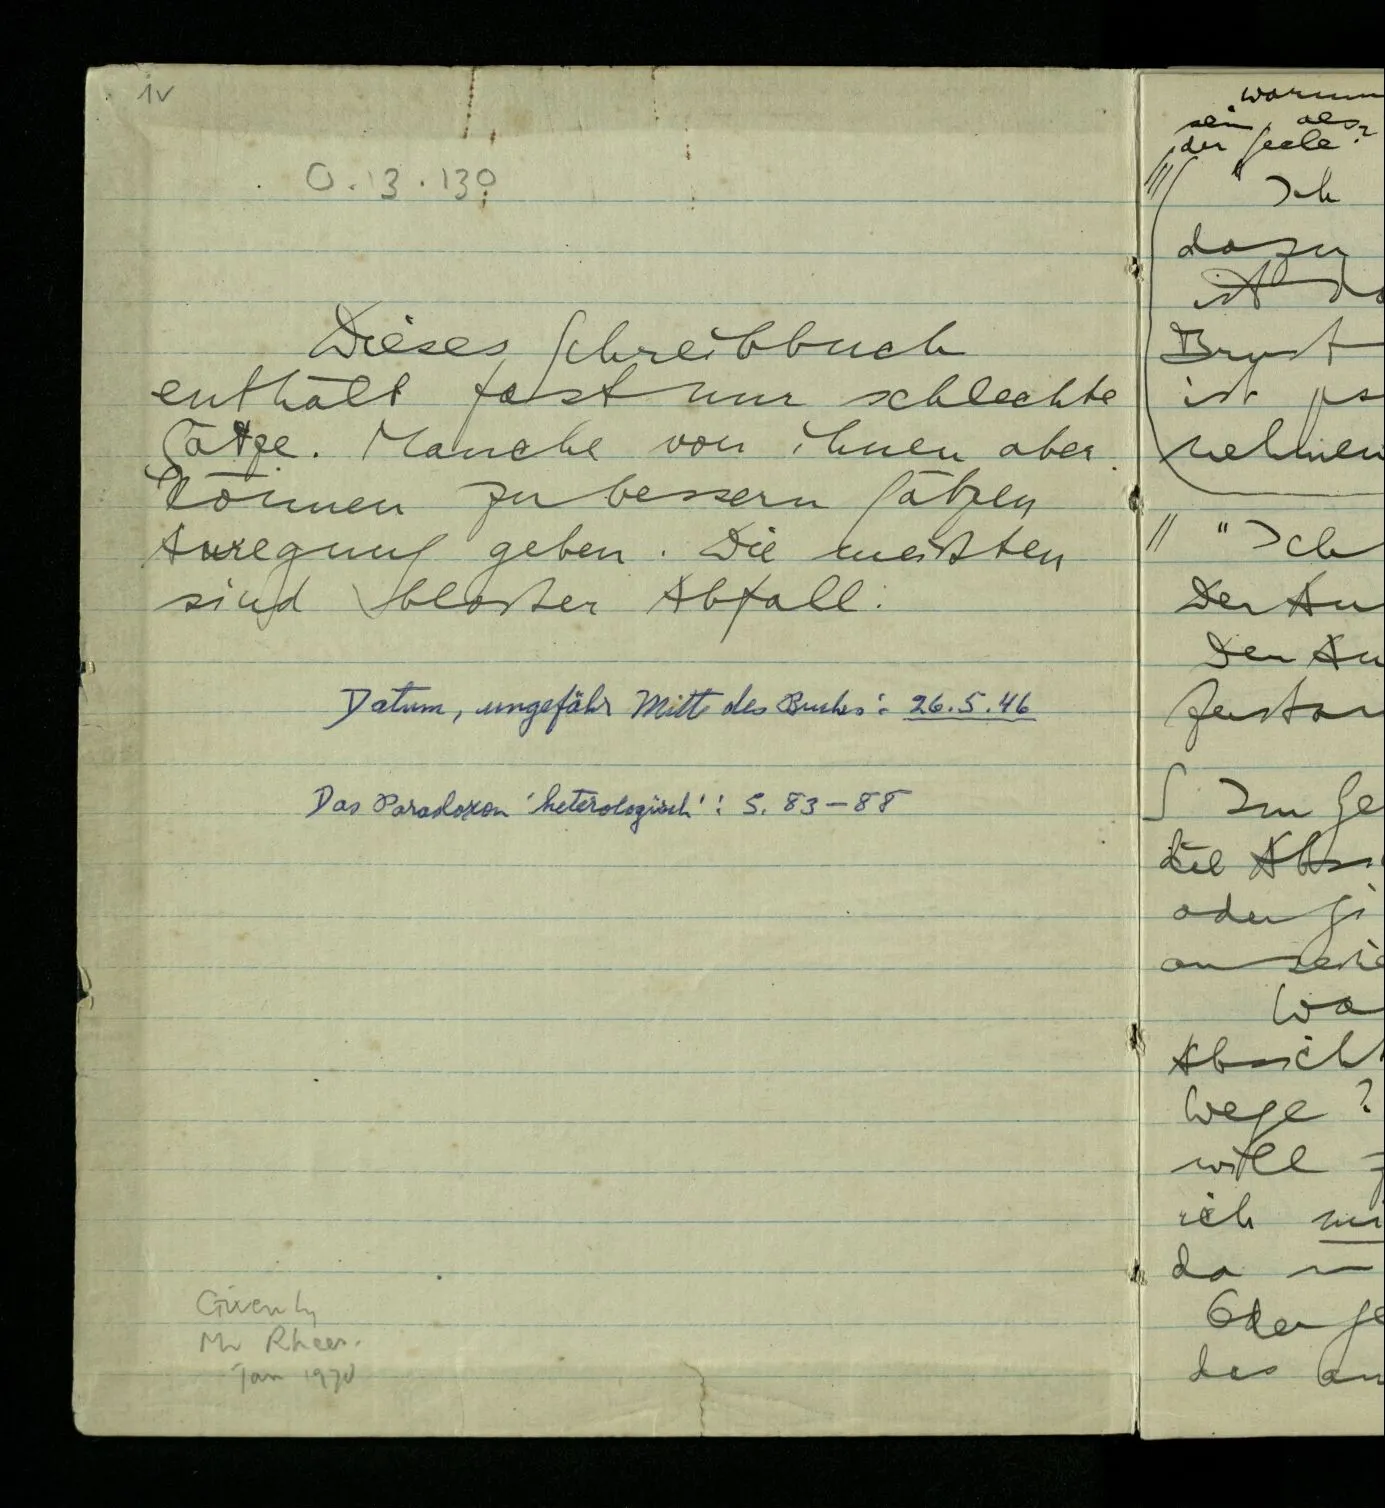 1v
0.13.130
Dieses Schreibbuch
enthält fast nur schlechte
Sätze. Manche von ihnen aber
können zu bessern Sätzen
Anregung geben. Die meisten
sind bloßer Abfall.
Datum, ungefähr Mitte des Buches: 26.5.46
Das Paradoxon 'heterologisch': S. 83–88
Given by
Mr Rhees.
Jan 1970
warum
sein, als
der Seele?
"Ich
dazu
ist
Brust
ist
nehmen
" "Ich
Der
Der
die
oder
Wa
Wege?
will
ich
da
Oder ge
des